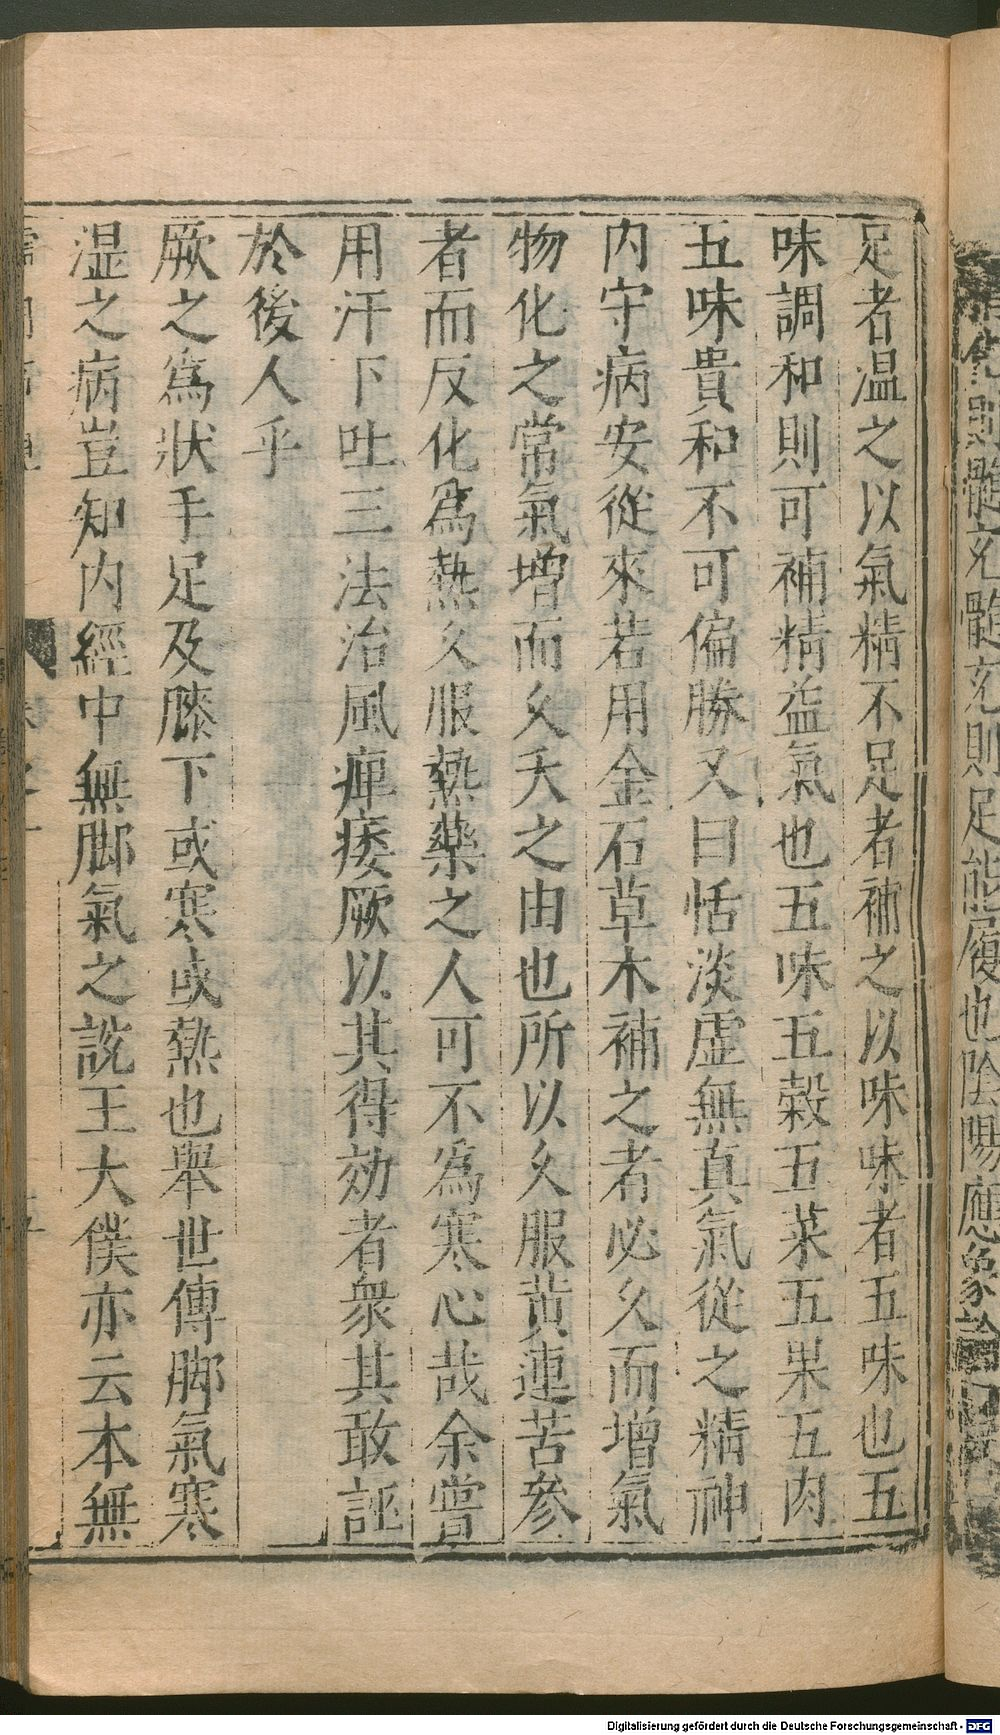 則髓充髓充則足能履也陰陽應象論
足者温之以氣精不足者補之以味味者五味也五
味調和則可補精益氣也五味五榖五菜五果五肉
五味貴和不可偏勝又曰恬淡虛無真氣從之精神
内守病安從來若用金石草木補之者必久而增氣
物化之常氣增而久夭之由也所以久服黄連苦參
者而反化爲熱久服熱藥之人可不爲寒心哉余嘗
用汗下吐三法治風痺痿厥以其得効者衆其敢誣
於後人乎
厥之爲狀手足及膝下或寒或熱也舉世傳脚氣寒
湿之病豈知内經中無脚氣之説王大僕亦云本無
Digitalisierung gefördert durch die Deutsche Forschungsgemeinschaft - DFG